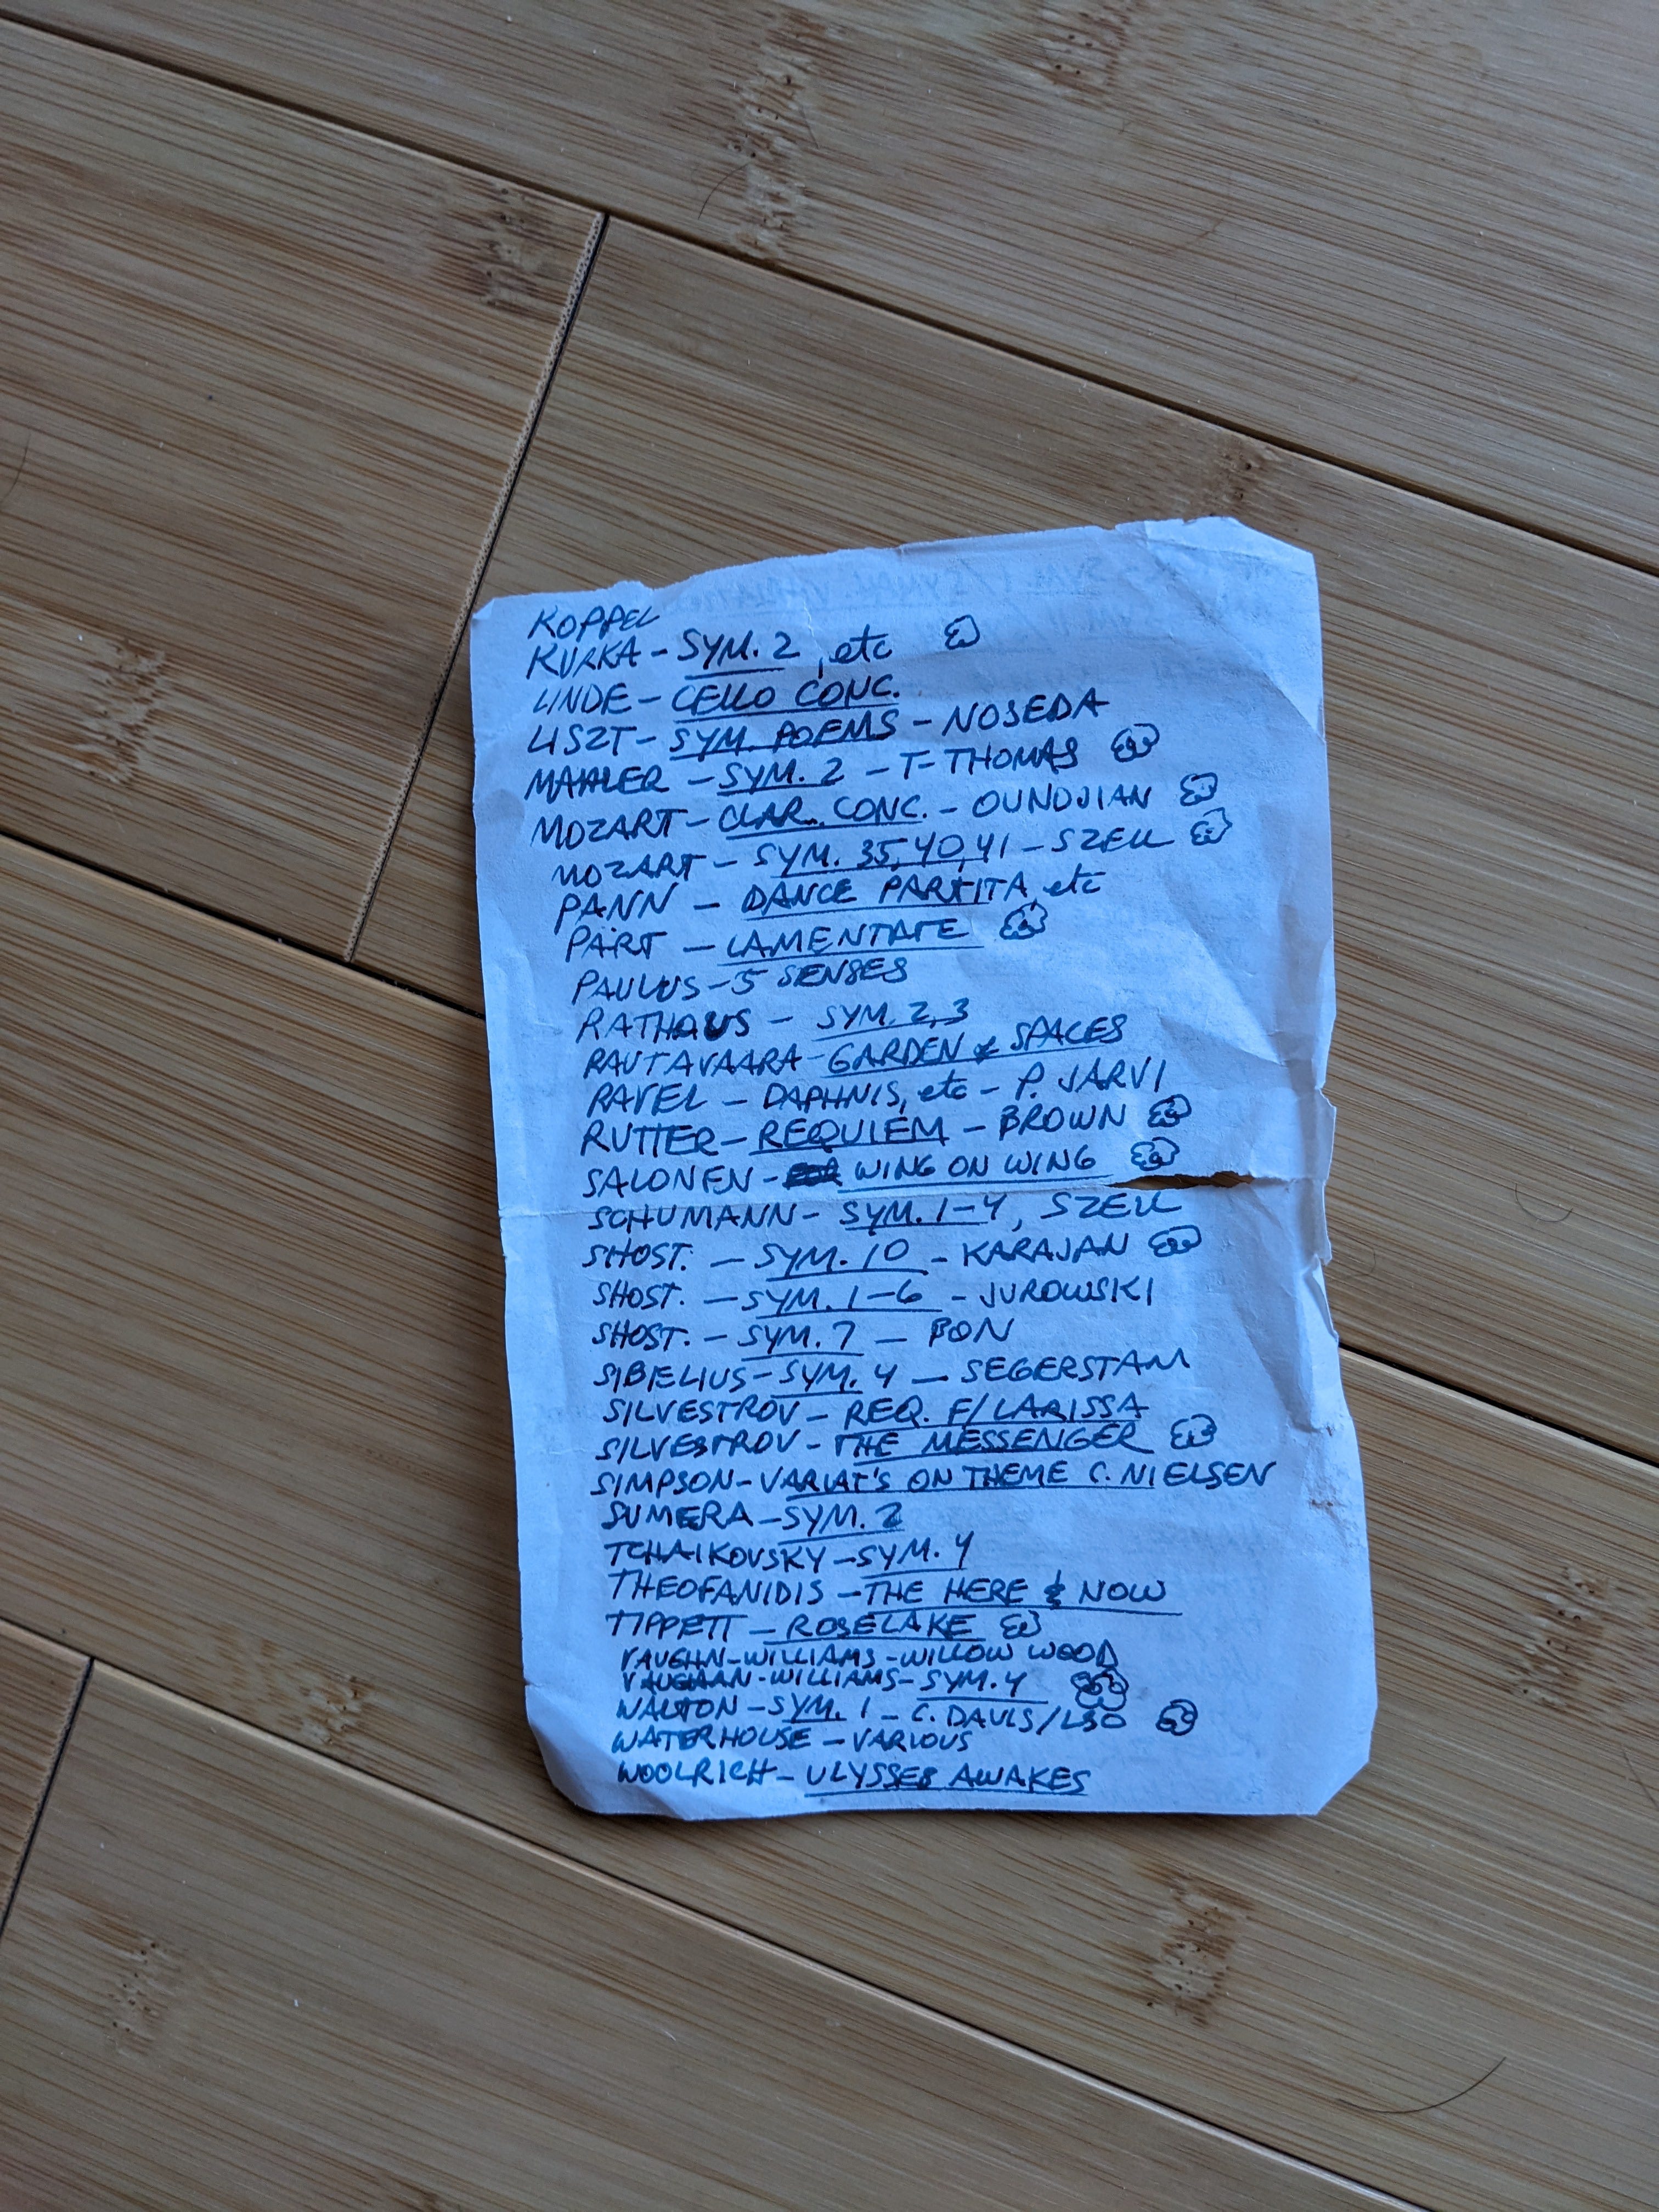 KOPPEL
KURKA - SYM. 2, etc
LINDE - CELLO CONC.
LISZT - SYM. POEMS - NOSEDA
MAHLER - SYM. 2 - T-THOMAS
MOZART - CLAR. CONC. - OUNDJIAN
MOZART - SYM. 35, 40, 41 - SZELL
PANN - DANCE PARTITA, etc
PÄRT - LAMENTATE
PAULUS - 5 SENSES
RATHAUS - SYM. 2, 3
RAUTAVAARA - GARDEN & SPACES
RAVEL - DAPHNIS, etc - P. JARVI
RUTTER - REQUIEM - BROWN
SALONEN - WING ON WING
SCHUMANN - SYM. 1-4, SZELL
SHOST. - SYM. 10 - KARAJAN
SHOST. - SYM. 1-6 - JUROWSKI
SHOST. - SYM. 7 - BON
SIBELIUS - SYM. 4 - SEGERSTAM
SILVESTROV - REQ. F/LARISSA
SILVESTROV - THE MESSENGER
SIMPSON - VARIAT'S ON THEME C. NIELSEN
SUMERA - SYM. 2
TCHAIKOVSKY - SYM. 4
THEOFANIDIS - THE HERE & NOW
TIPPETT - ROSELAKE
VAUGHN-WILLIAMS - WILLOW WOOD
VAUGHAN-WILLIAMS - SYM. 4
WALTON - SYM. 1 - C. DAVIS/LSO
WATERHOUSE - VARIOUS
WOOLRICH - ULYSSES AWAKES